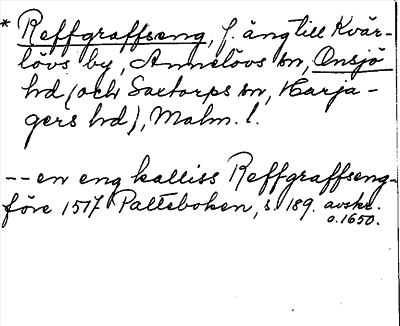 * Reffgraffseng, f. äng till Kvär-
lövs by, Annelövs sn, Onsjö
hd (och Saxtorps sn, Harja-
gers hd), Malm. l.
-- en eng kalliss Reffgraffseng
före 1517 Palteboken, s. 189. avskr.
o. 1650.